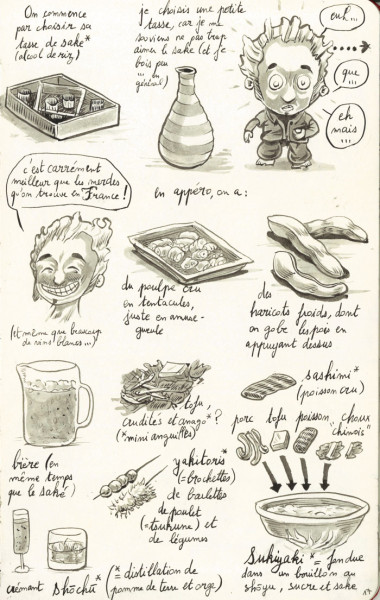 On commence
par choisir sa
tasse de saké*
(alcool de riz)
je choisis une petite
tasse, car je me
souviens ne pas trop
aimer le saké (et je
bois peu
... en
général)
euh...
que
...
eh
mais
...
c'est carrément
meilleur que les merdes
qu'on trouve en France !
(et même que beaucoup
de vins blancs...)
en appéro, on a :
du poulpe cru
en tentacules,
juste en amuse-
gueule
des
haricots froids, dont
on gobe les pois en
appuyant dessus
bière (en
même temps
que le saké)
tofu,
crudités et anago* ?
(*mini anguilles)
sashimi*
(poisson cru)
porc tofu poisson "choux
chinois"
yakitoris*
(=brochettes)
de boulettes
de poulet
(=tsukune) et
de légumes
crémant shōchū* (*= distillation de
pomme de terre et orge)
Sukiyaki* = fondue
dans un bouillon au
shōyu, sucre et saké
17